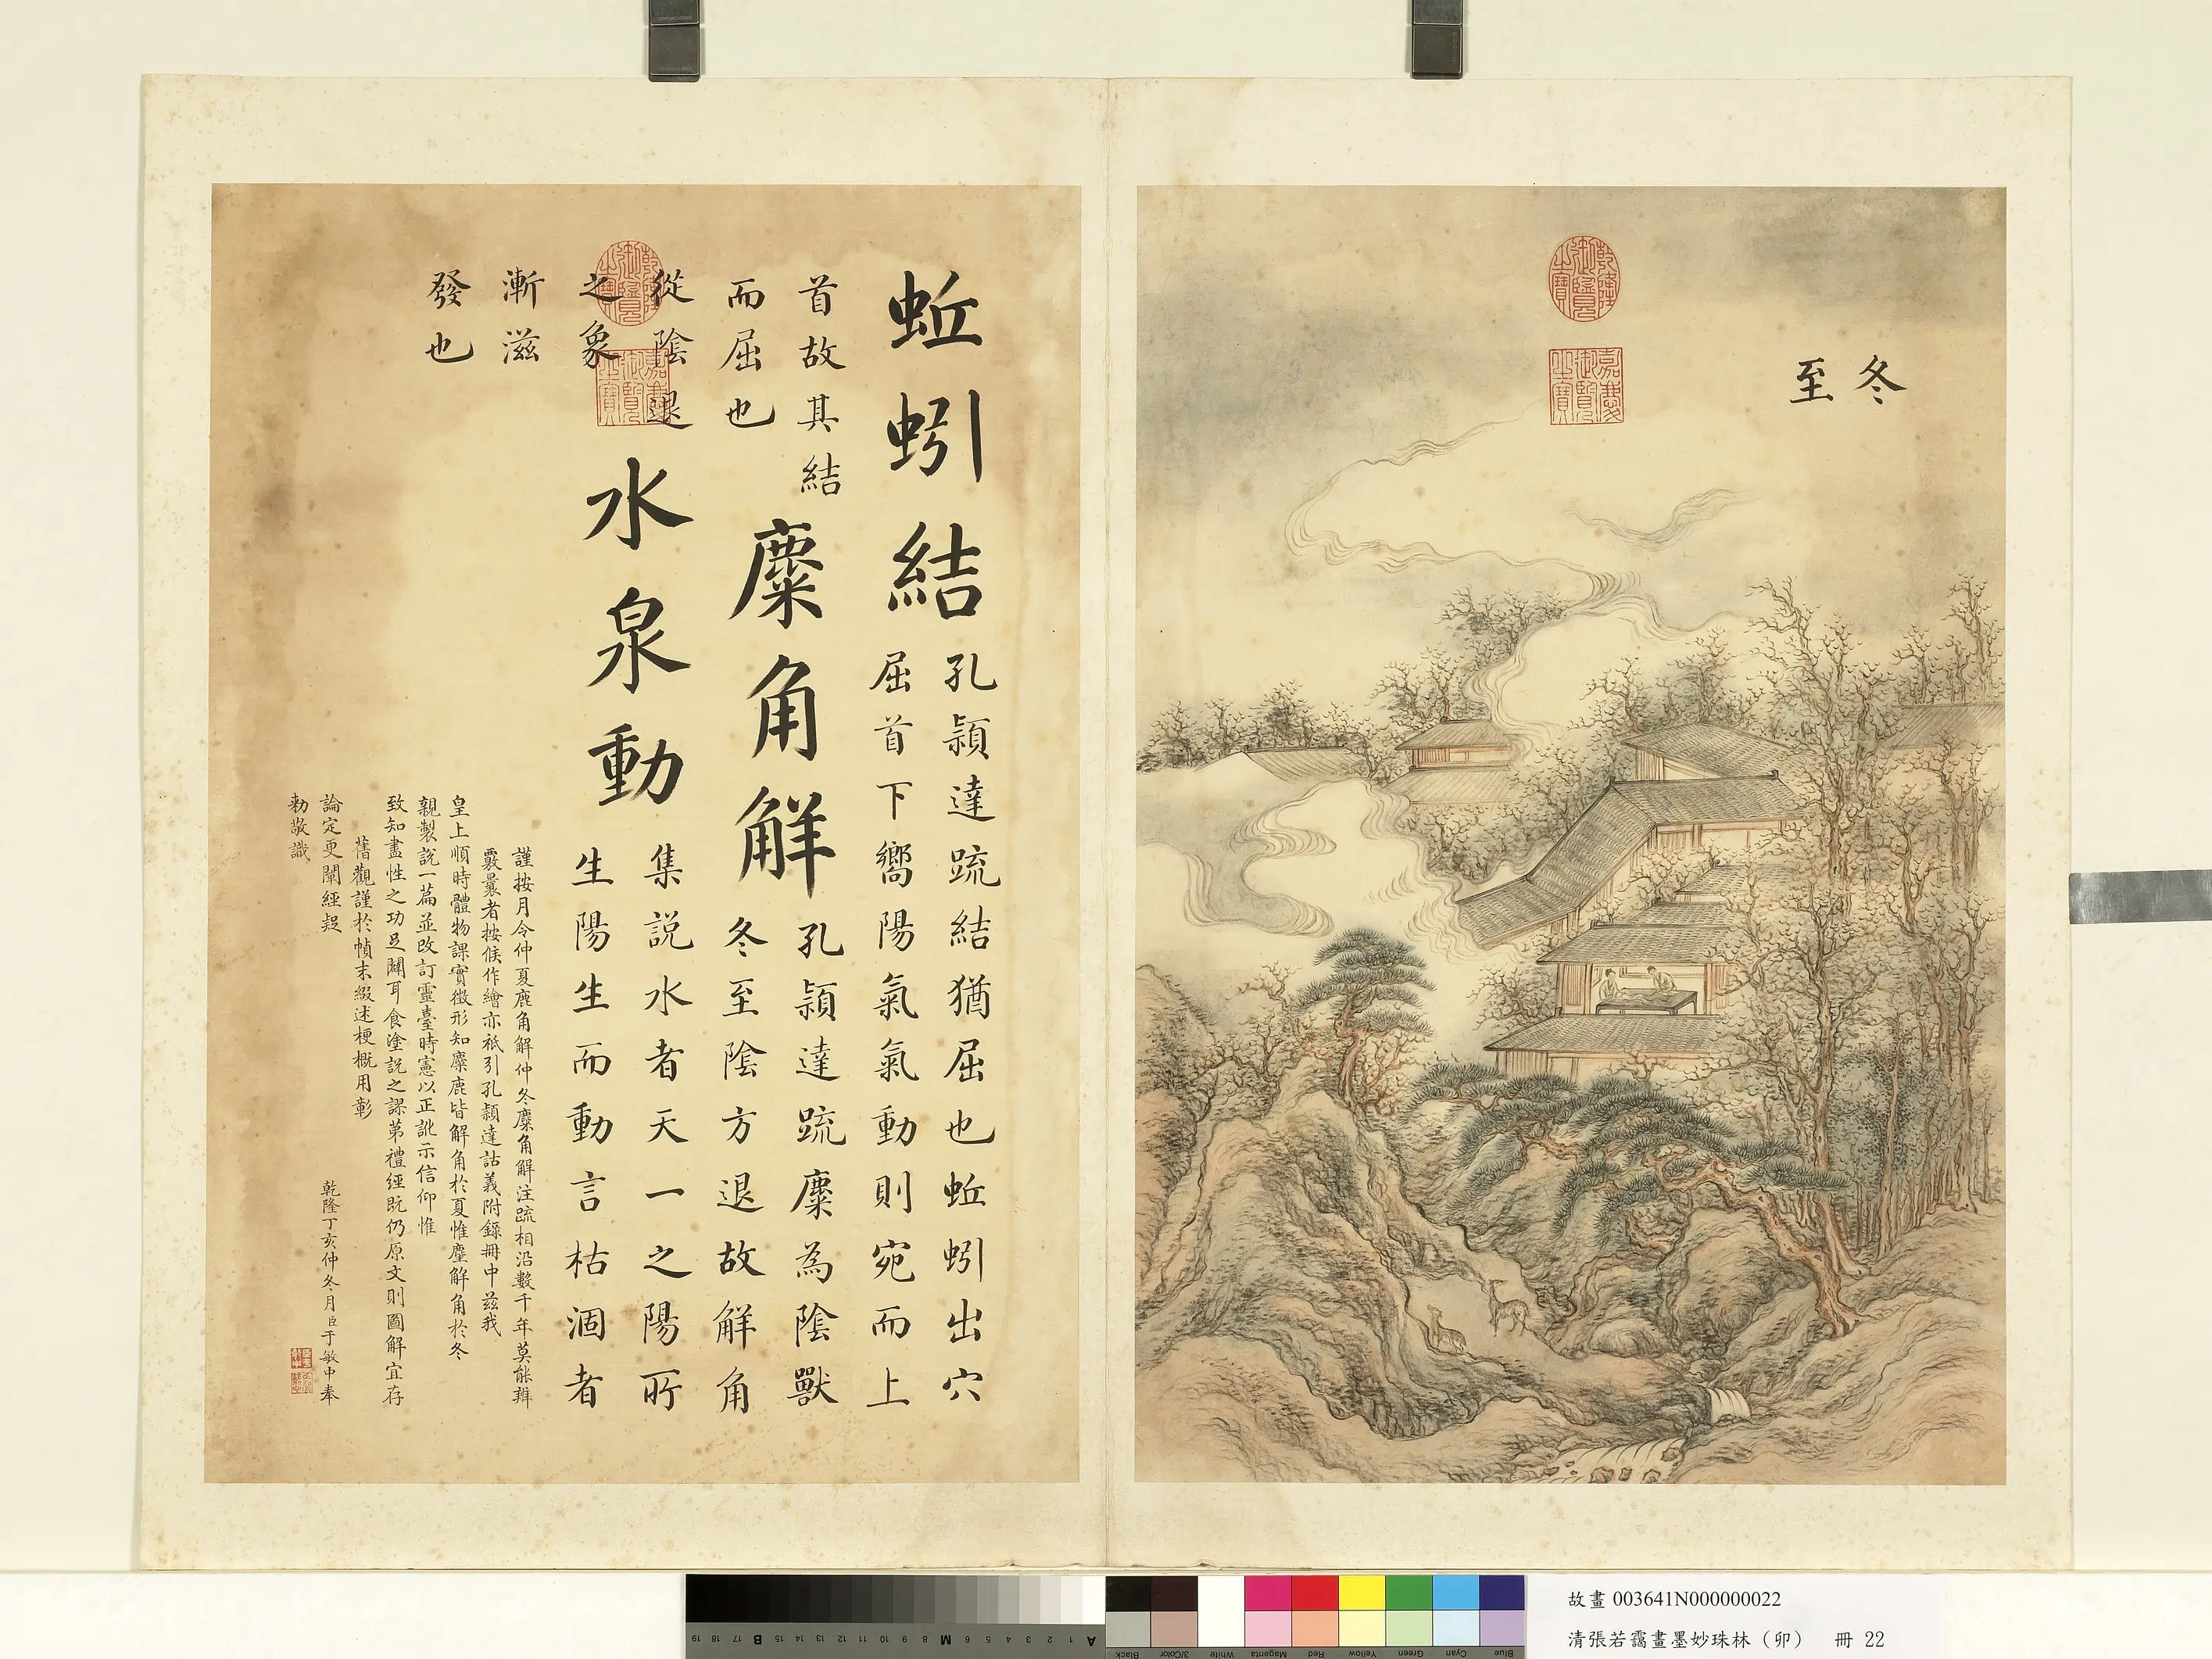 冬
至
乾隆御覽之寶
嘉慶御覽之寶
蚯蚓結
孔穎達疏結猶屈也蚯蚓出穴
屈首下嚮陽氣氣動則宛而上
首故其結
而屈也
麋角解
孔穎達疏麋為陰獸
冬至陰方退故解角
從陰退
之象
水泉動
集說水者天一之陽所
生陽生而動言枯涸者
漸滋
發也
乾隆御覽之寶
嘉慶御覽之寶
謹按月令仲夏鹿角解仲冬麋角解注疏相沿數千年莫能辨
覈曩者按候作繪亦祇引孔穎達詁義附錄冊中茲我
皇上順時體物課實徵形知麋鹿皆解角於夏惟麈解角於冬
親製說一篇並改訂靈臺時憲以正訛示信仰惟
致知盡性之功足闢耳食塗說之謬第禮經既仍原文則圖解宜存
舊觀謹於幀末綴述梗概用彰
論定更闡經疑 乾隆丁亥仲冬月臣于敏中奉
勑敬識
19 18 17 B 16 15 14 13 12 11 10 9 8 M 7 6 5 4 3 2 1 A
Black 3/Color White Magenta Red Yellow Green Cyan Blue
故畫 003641N000000022
清張若靄畫墨妙珠林（卯） 冊 22